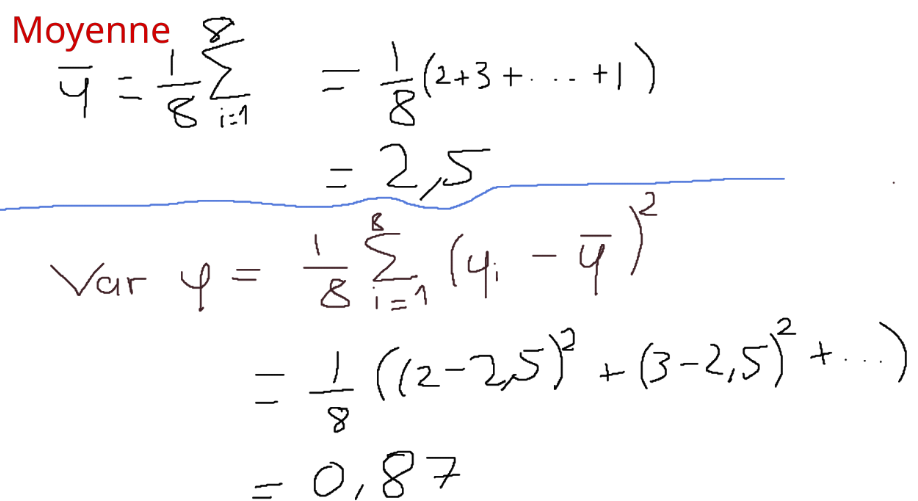 Moyenne
ȳ = 1/8 ∑_{i=1}^{8} = 1/8 (2+3+...+1)
= 2,5
Var y = 1/8 ∑_{i=1}^{8} (y_i − ȳ)²
= 1/8 ((2−2,5)² + (3−2,5)² + ...)
= 0,87